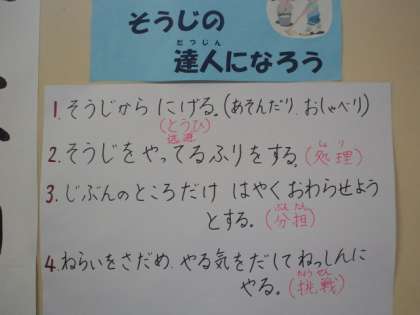 そうじの
たつじん
達人になろう
1. そうじから にげる。(あそんだり、おしゃべり)
(とうひ)
逃避
2. そうじを やってるふりをする。(処理)
しょ り
3. じぶんのところだけ はやく おわらせよう
とする。(分担)
ぶんたん
4. ねらいをさだめ、やる気をだして ねっしんに
やる。(挑戦)
ちょうせん